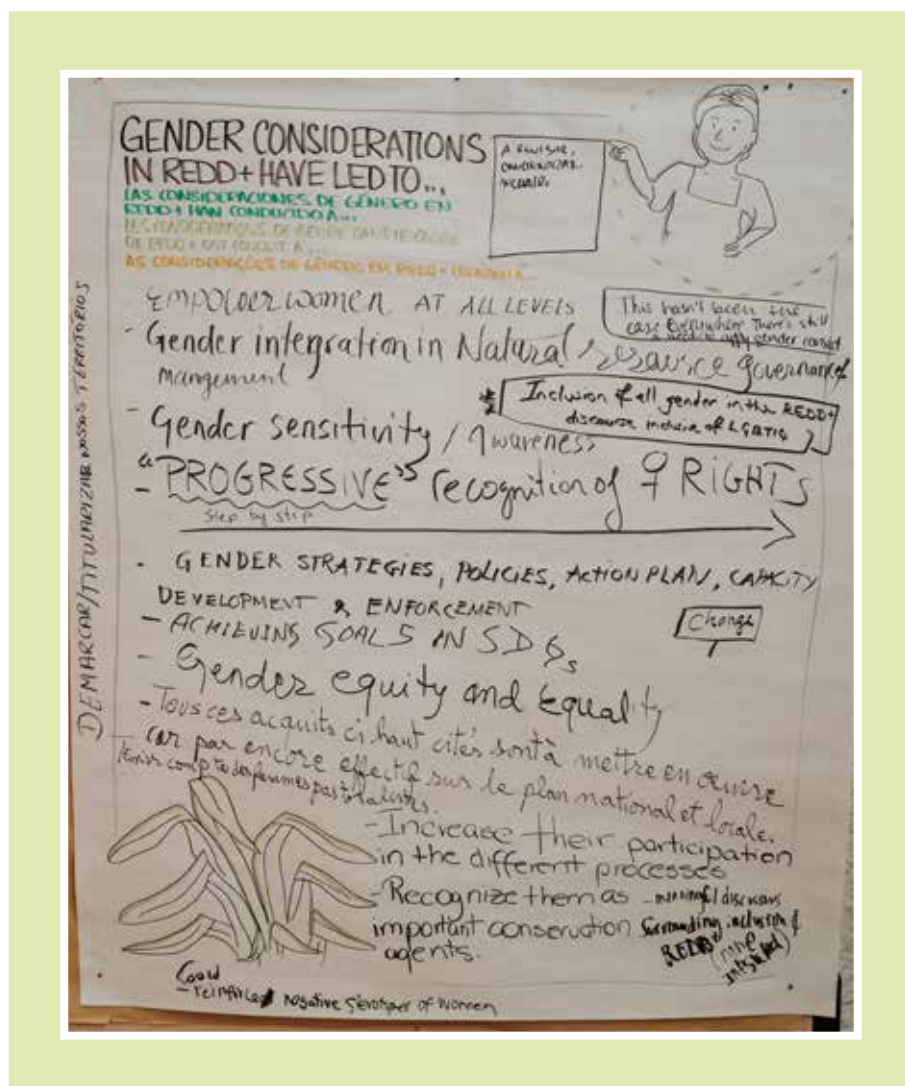 GENDER CONSIDERATIONS
IN REDD+ HAVE LED TO...
LAS CONSIDERACIONES DE GÉNERO EN
REDD+ HAN CONDUCIDO A...
DE REDD+ ONT CONDUIT À...
AS CONSIDERAÇÕES DE GÊNERO EM REDD+
DEMARCAR/TITULARIZAR NOSSOS TERRITÓRIOS
EMPOWER WOMEN AT ALL LEVELS
This hasn't been the
case Everywhere There's still
a need to apply gender
- Gender integration in Natural resource governance
Mangement
Inclusion of all gender in the REDD+
discourse of LGBTIQ
- Gender sensitivity / Awareness
- "PROGRESSIVE" recognition of ♀ RIGHTS
Step by step
- GENDER STRATEGIES, POLICIES, ACTION PLAN, CAPACITY
DEVELOPMENT & ENFORCEMENT
Change
- ACHIEVING GOALS IN SDGs
- Gender equity and Equality
- Tous ces acquits ci haut cités sont à mettre en œuvre
car pas encore effectif sur le plan national et locale.
compte des femmes pastoralistes.
- Increase their participation
in the different processes
- Recognize them as
important conservction
agents.
- meaningful discussions
Surrounding inclusion of
REDD+
- reinforced negative of women